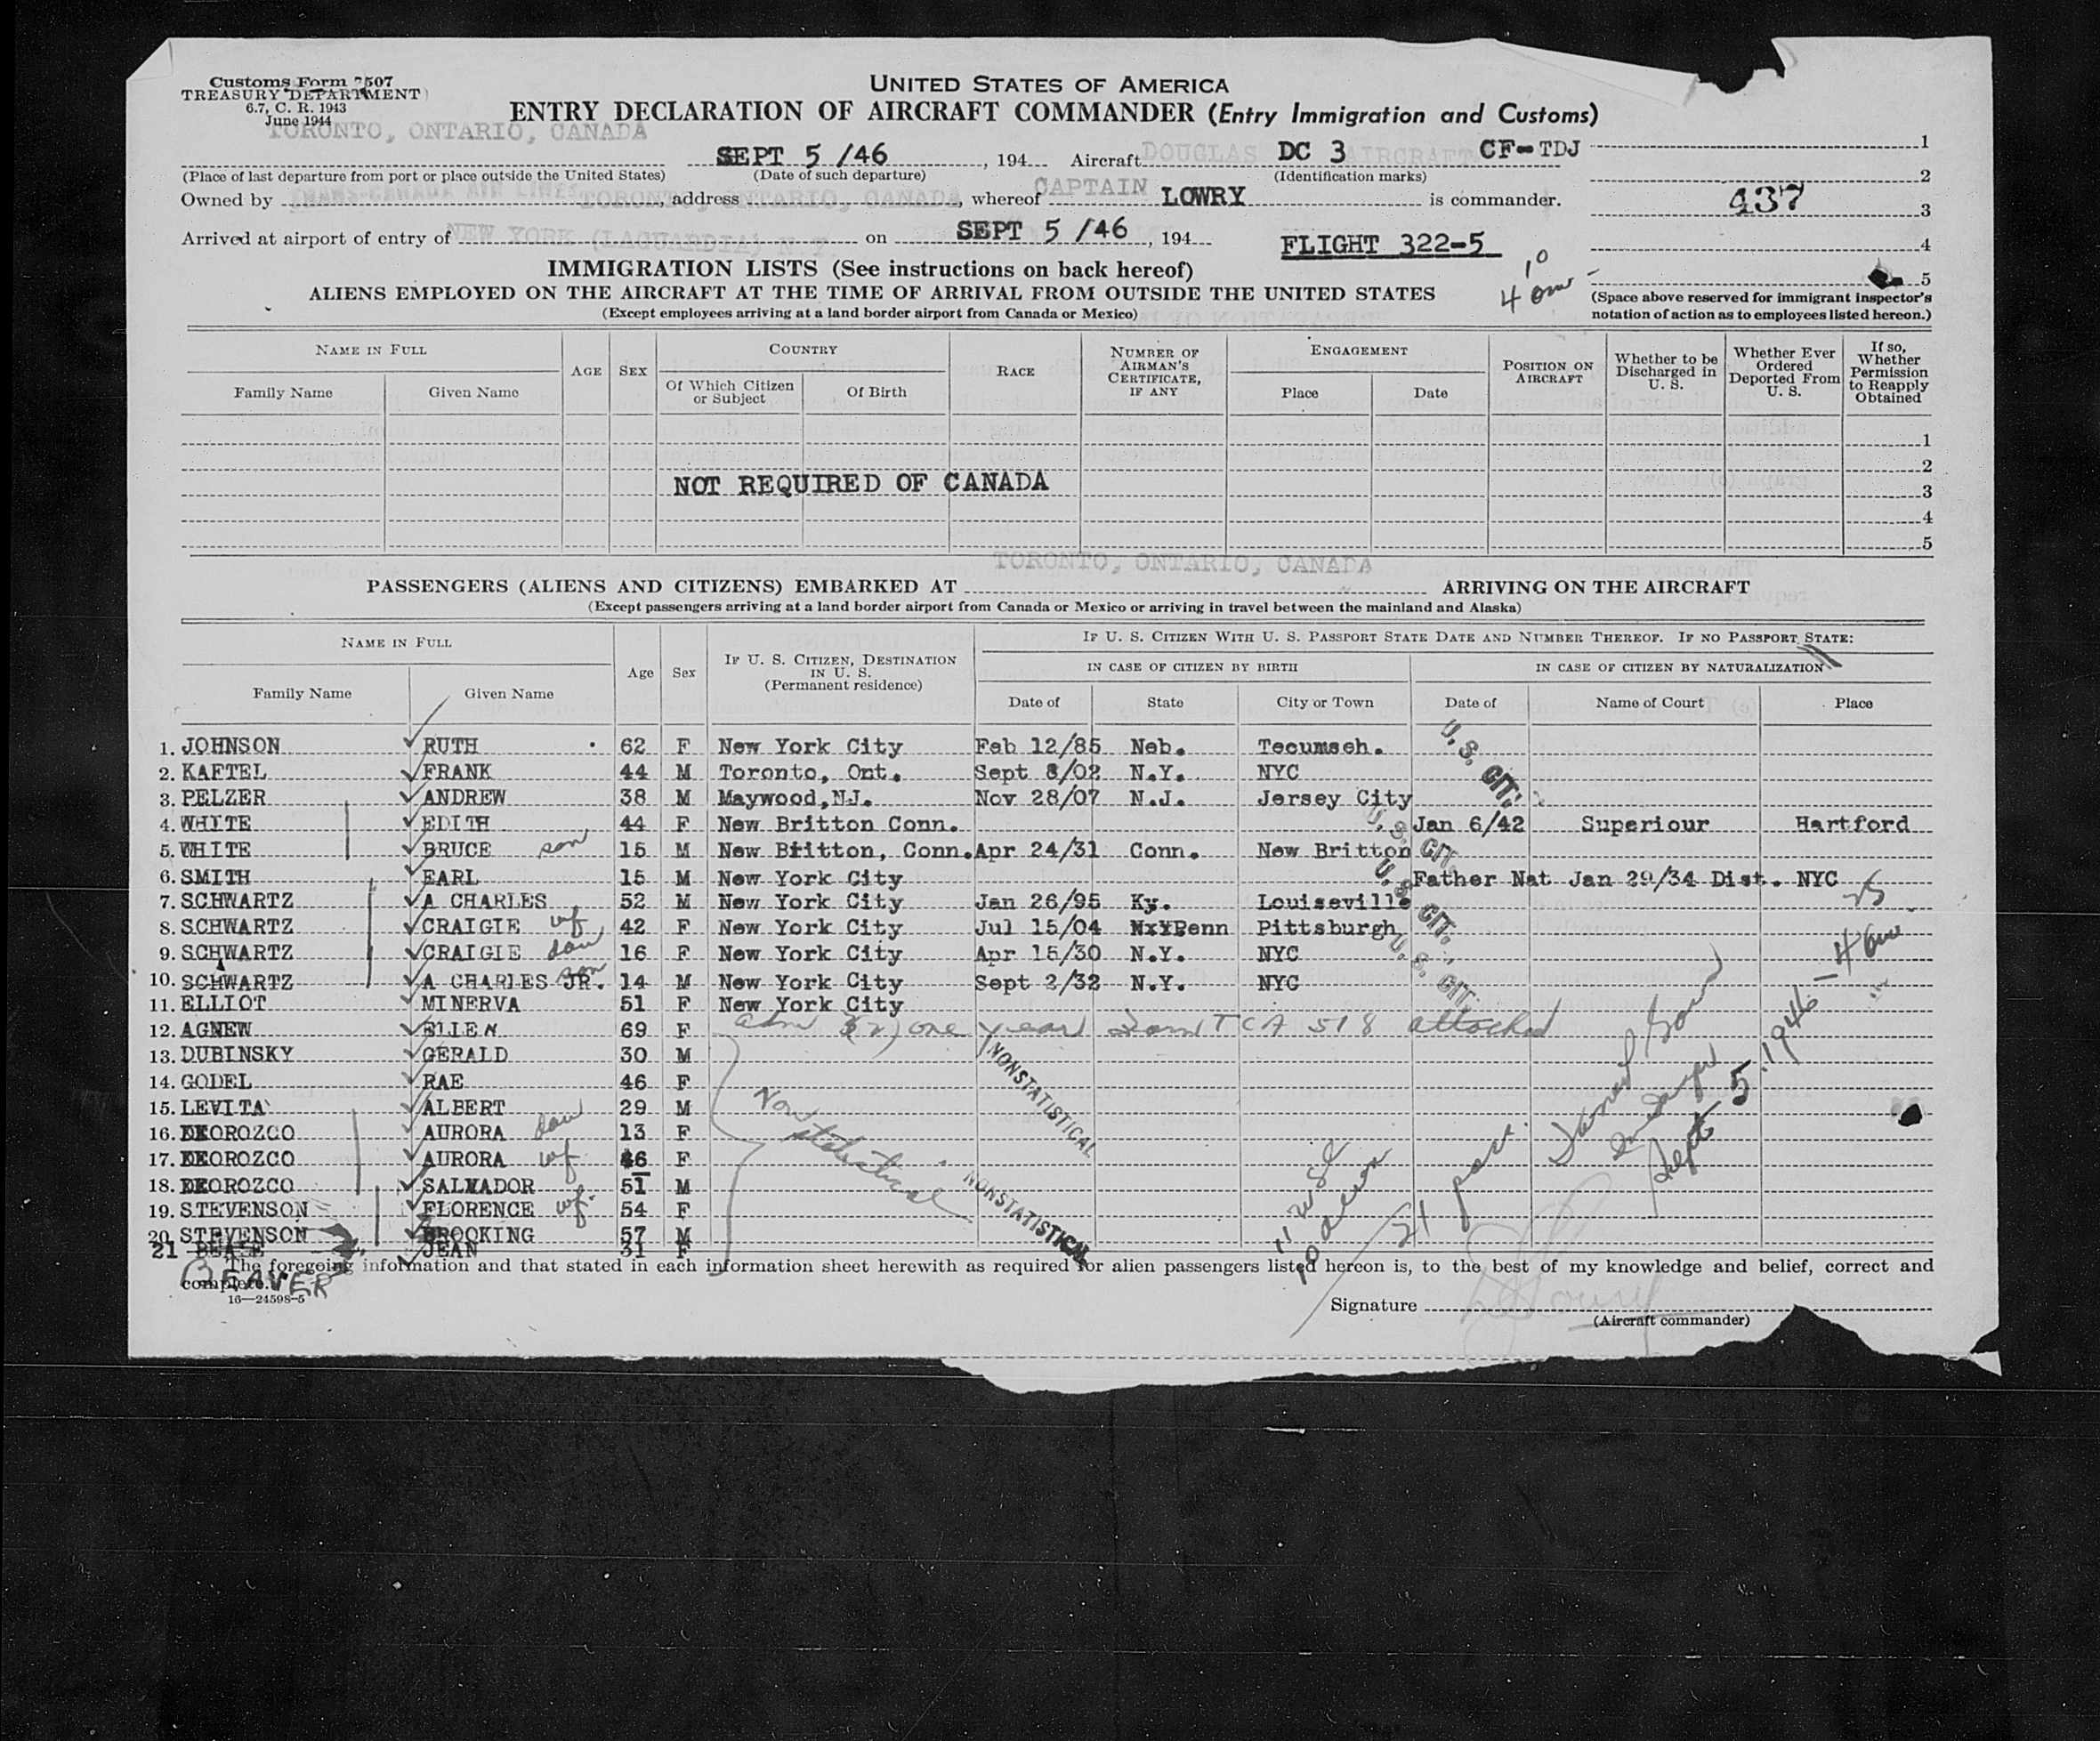 Customs Form 7507
TREASURY DEPARTMENT
6.7, C. R. 1943
June 1944
UNITED STATES OF AMERICA
ENTRY DECLARATION OF AIRCRAFT COMMANDER (Entry Immigration and Customs)
TORONTO, ONTARIO, CANADA SEPT 5 /46, 194 Aircraft DOUGLAS DC 3 AIRCRAFT CF-TDJ 1
(Place of last departure from port or place outside the United States) (Date of such departure) (Identification marks) 2
Owned by TRANS-CANADA AIR LINES, address TORONTO, ONTARIO, CANADA, whereof CAPTAIN LOWRY is commander. 437 3
Arrived at airport of entry of NEW YORK (LAGUARDIA) N.Y. on SEPT 5 /46, 194 FLIGHT 322-5 4
IMMIGRATION LISTS (See instructions on back hereof) 10 5
ALIENS EMPLOYED ON THE AIRCRAFT AT THE TIME OF ARRIVAL FROM OUTSIDE THE UNITED STATES
(Except employees arriving at a land border airport from Canada or Mexico)
(Space above reserved for immigrant inspector's notation of action as to employees listed hereon.)
NAME IN FULL AGE SEX COUNTRY RACE NUMBER OF AIRMAN'S CERTIFICATE, IF ANY ENGAGEMENT POSITION ON AIRCRAFT Whether to be Discharged in U. S. Whether Ever Ordered Deported From U. S. If so, Whether Permission to Reapply Obtained
Family Name Given Name Of Which Citizen or Subject Of Birth Place Date
1
2
NOT REQUIRED OF CANADA 3
4
5
PASSENGERS (ALIENS AND CITIZENS) EMBARKED AT TORONTO, ONTARIO, CANADA ARRIVING ON THE AIRCRAFT
(Except passengers arriving at a land border airport from Canada or Mexico or arriving in travel between the mainland and Alaska)
NAME IN FULL Age Sex IF U. S. CITIZEN, DESTINATION IN U. S. (Permanent residence) IF U. S. CITIZEN WITH U. S. PASSPORT STATE DATE AND NUMBER THEREOF. IF NO PASSPORT STATE:
IN CASE OF CITIZEN BY BIRTH IN CASE OF CITIZEN BY NATURALIZATION
Family Name Given Name Date of State City or Town Date of Name of Court Place
1. JOHNSON RUTH 62 F New York City Feb 12/85 Neb. Tecumseh. U. S. CIT.
2. KAFTEL FRANK 44 M Toronto, Ont. Sept 8/02 N.Y. NYC
3. PELZER ANDREW 38 M Maywood,N.J. Nov 28/07 N.J. Jersey City
4. WHITE EDITH 44 F New Britton Conn. U. S. CIT. Jan 6/42 Superiour Hartford
5. WHITE BRUCE son 15 M New Britton, Conn. Apr 24/31 Conn. New Britton
6. SMITH EARL 15 M New York City U. S. CIT. Father Nat Jan 29/34 Dist. NYC
7. SCHWARTZ A CHARLES 52 M New York City Jan 26/95 Ky. Louiseville
8. SCHWARTZ CRAIGIE wf 42 F New York City Jul 15/04 Penn Pittsburgh
9. SCHWARTZ CRAIGIE dau 16 F New York City Apr 15/30 N.Y. NYC U. S. CIT.
10. SCHWARTZ A CHARLES JR. son 14 M New York City Sept 2/32 N.Y. NYC
11. ELLIOT MINERVA 51 F New York City
12. AGNEW ELLEN 69 F adm 3(2) one year TCA 518 attached
13. DUBINSKY GERALD 30 M NONSTATISTICAL
14. GODEL RAE 46 F
15. LEVITA ALBERT 29 M Non statistical
16. DEOROZCO AURORA dau 13 F
17. DEOROZCO AURORA wf 46 F
18. DEOROZCO SALVADOR 51 M NONSTATISTICAL
19. STEVENSON FLORENCE wf. 54 F
20. STEVENSON BROOKING 57 M
21 JEAN 31 F
BEAVER
Sept 5, 1946
21 pass.
The foregoing information and that stated in each information sheet herewith as required for alien passengers listed hereon is, to the best of my knowledge and belief, correct and
complete.
16—24598-5
Signature
(Aircraft commander)